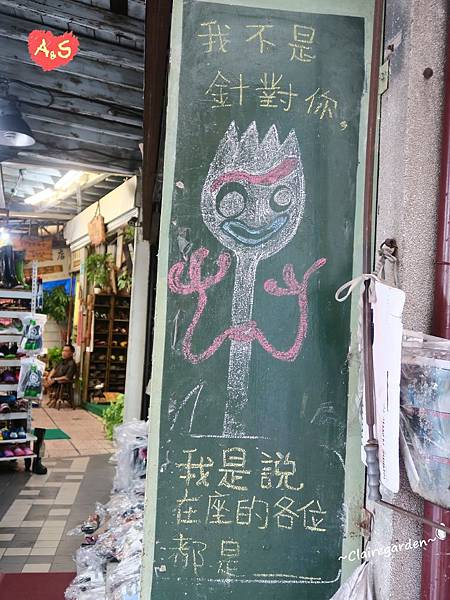 A&S
我不是
針對你。
我是說
在座的各位
都是
店
~Clairegarden~